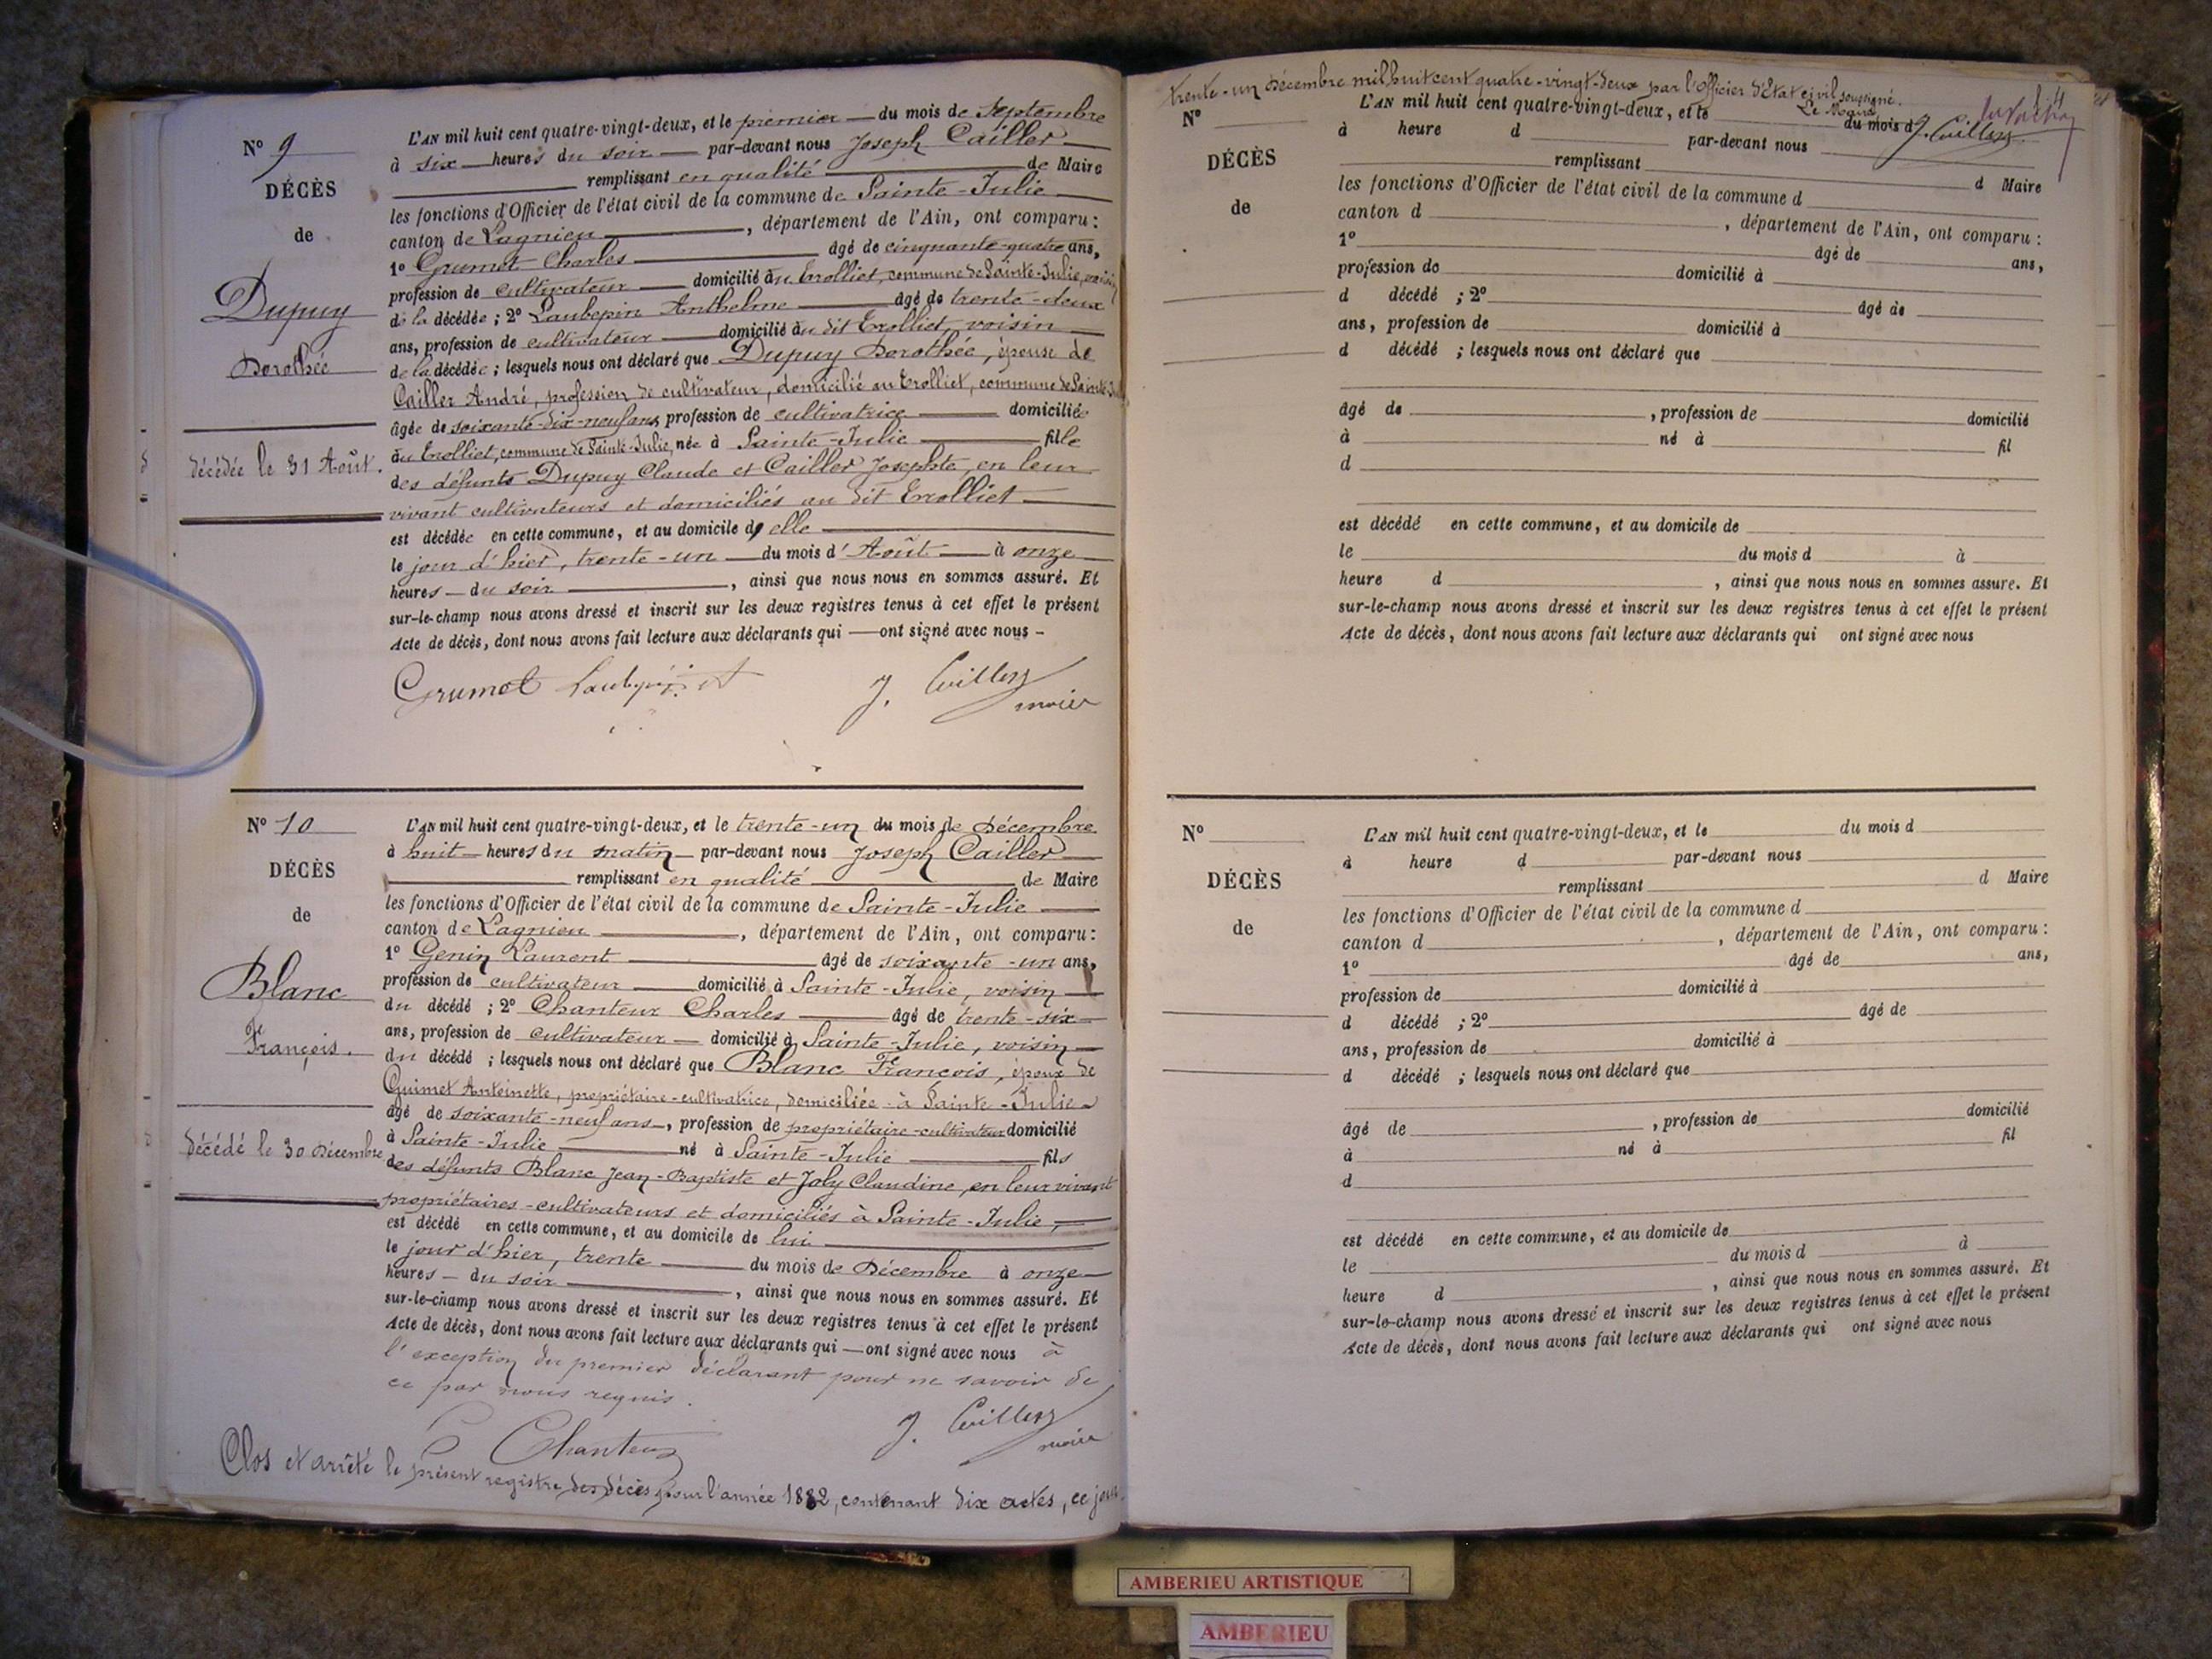 N° 9
DÉCÈS
de
Dupuy
Dorothée
décédée le 31 Août.
L'AN mil huit cent quatre-vingt-deux, et le premier du mois de Septembre
à six heures du soir par-devant nous Joseph Cailler
remplissant en qualité de Maire
les fonctions d'Officier de l'état civil de la commune de Sainte-Julie
canton de Lagnieu, département de l'Ain, ont comparu :
1° Grumet Charles âgé de cinquante-quatre ans,
profession de cultivateur domicilié au Trolliet, commune de Sainte-Julie, voisin
de la décédée ; 2° Laubepin Anthelme âgé de trente-deux
ans, profession de cultivateur domicilié au dit Trolliet, voisin
de la décédée ; lesquels nous ont déclaré que Dupuy Dorothée, épouse de
Cailler André, profession de cultivateur, domicilié au Trolliet, commune de Sainte-
âgée de soixante-dix-neuf ans, profession de cultivatrice domiciliée
au Trolliet, commune de Sainte-Julie, née à Sainte-Julie fille
des défunts Dupuy Claude et Cailler Josephte, en leur
vivant cultivateurs et domiciliés au dit Trolliet
est décédée en cette commune, et au domicile d'elle
le jour d'hier, trente-un du mois d'Août à onze
heures du soir, ainsi que nous nous en sommes assuré. Et
sur-le-champ nous avons dressé et inscrit sur les deux registres tenus à cet effet le présent
Acte de décès, dont nous avons fait lecture aux déclarants qui ont signé avec nous
Grumet J. Cailler
maire
N° 10
DÉCÈS
de
Blanc
François.
décédé le 30 Décembre
L'AN mil huit cent quatre-vingt-deux, et le trente-un du mois de Décembre
à huit heures du matin par-devant nous Joseph Cailler
remplissant en qualité de Maire
les fonctions d'Officier de l'état civil de la commune de Sainte-Julie
canton de Lagnieu, département de l'Ain, ont comparu :
1° Genin Laurent âgé de soixante-un ans,
profession de cultivateur domicilié à Sainte-Julie, voisin
du décédé ; 2° Chanteur Charles âgé de trente-six
ans, profession de cultivateur domicilié à Sainte-Julie, voisin
du décédé ; lesquels nous ont déclaré que Blanc François, époux de
Guimet Antoinette, propriétaire-cultivatrice, domiciliée à Sainte-Julie
âgé de soixante-neuf ans, profession de propriétaire-cultivateur domicilié
à Sainte-Julie né à Sainte-Julie fils
des défunts Blanc Jean-Baptiste et Joly Claudine, en leur vivant
propriétaires-cultivateurs et domiciliés à Sainte-Julie,
est décédé en cette commune, et au domicile de lui
le jour d'hier, trente du mois de Décembre à onze
heures du soir, ainsi que nous nous en sommes assuré. Et
sur-le-champ nous avons dressé et inscrit sur les deux registres tenus à cet effet le présent
Acte de décès, dont nous avons fait lecture aux déclarants qui ont signé avec nous à
l'exception du premier déclarant pour ne savoir de
ce par nous requis.
Chanteur J. Cailler
maire
Clos et arrêté le présent registre des décès pour l'année 1882, contenant dix actes, ce jour
trente-un Décembre mil huit cent quatre-vingt-deux par l'Officier d'Etat civil soussigné.
Le Maire
J. Cailler
N°
DÉCÈS
de
L'AN mil huit cent quatre-vingt-deux, et le du mois d
à heure d par-devant nous
remplissant d Maire
les fonctions d'Officier de l'état civil de la commune d
canton d , département de l'Ain, ont comparu :
1° âgé de ans,
profession de domicilié à
d décédé ; 2° âgé de
ans, profession de domicilié à
d décédé ; lesquels nous ont déclaré que
âgé de , profession de domicilié
à né à fil
d
est décédé en cette commune, et au domicile de
le du mois d à
heure d , ainsi que nous nous en sommes assuré. Et
sur-le-champ nous avons dressé et inscrit sur les deux registres tenus à cet effet le présent
Acte de décès, dont nous avons fait lecture aux déclarants qui ont signé avec nous
N°
DÉCÈS
de
L'AN mil huit cent quatre-vingt-deux, et le du mois d
à heure d par-devant nous
remplissant d Maire
les fonctions d'Officier de l'état civil de la commune d
canton d , département de l'Ain, ont comparu :
1° âgé de ans,
profession de domicilié à
d décédé ; 2° âgé de
ans, profession de domicilié à
d décédé ; lesquels nous ont déclaré que
âgé de , profession de domicilié
à né à fil
d
est décédé en cette commune, et au domicile de
le du mois d à
heure d , ainsi que nous nous en sommes assuré. Et
sur-le-champ nous avons dressé et inscrit sur les deux registres tenus à cet effet le présent
Acte de décès, dont nous avons fait lecture aux déclarants qui ont signé avec nous
AMBERIEU ARTISTIQUE
AMBERIEU